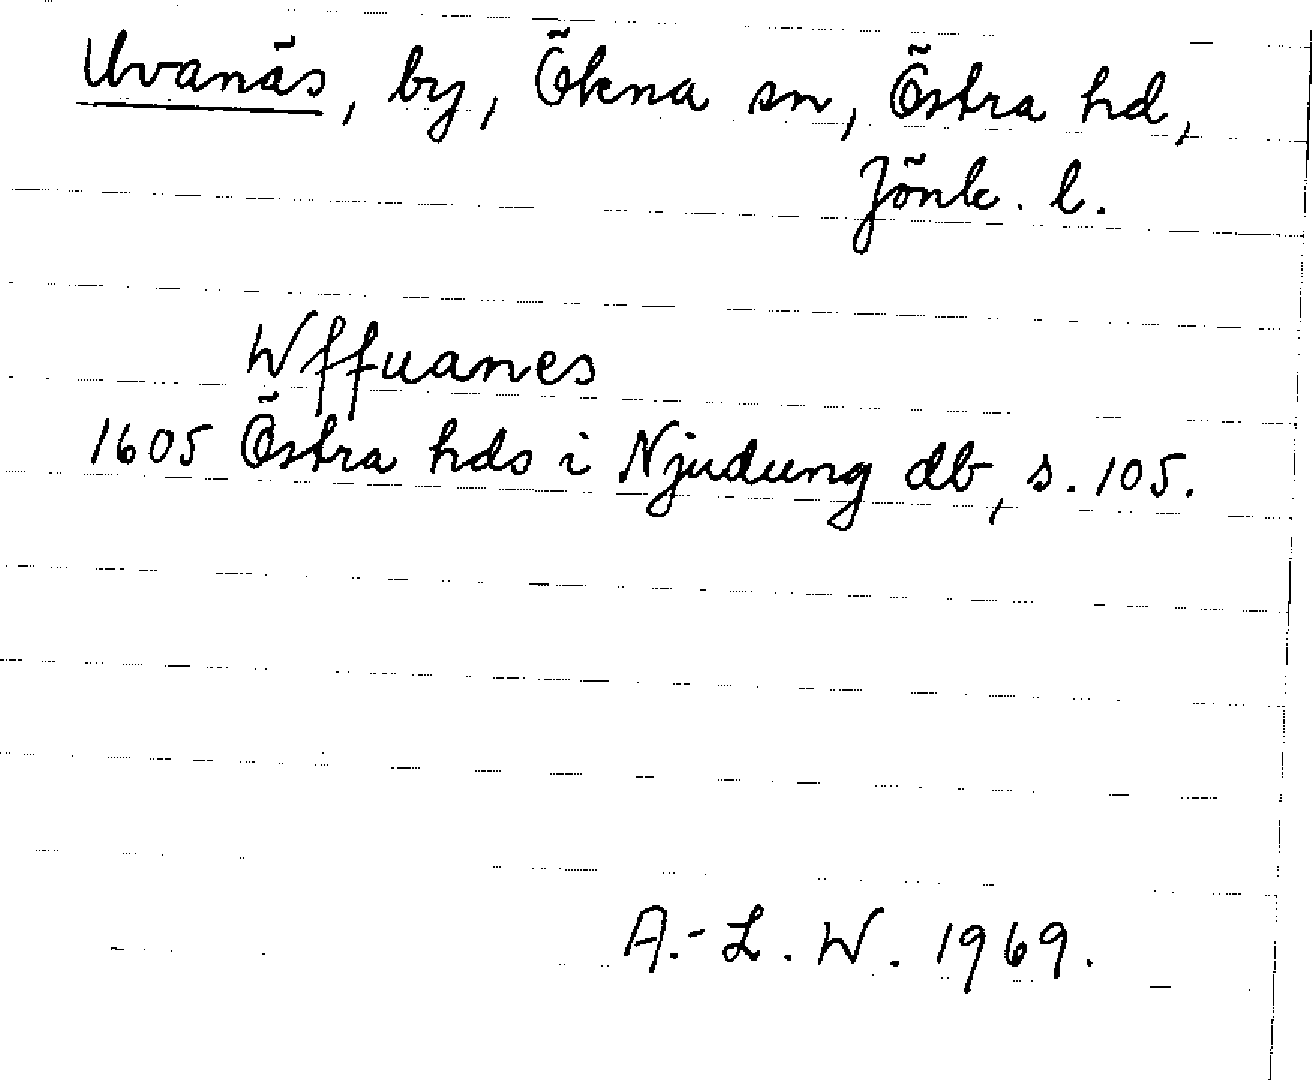 Uvanäs, by, Ökna sn, Östra hd,
Jönk. l.
Wffuanes
1605 Östra hds i Njudung db, s. 105.
A.-L. W. 1969.